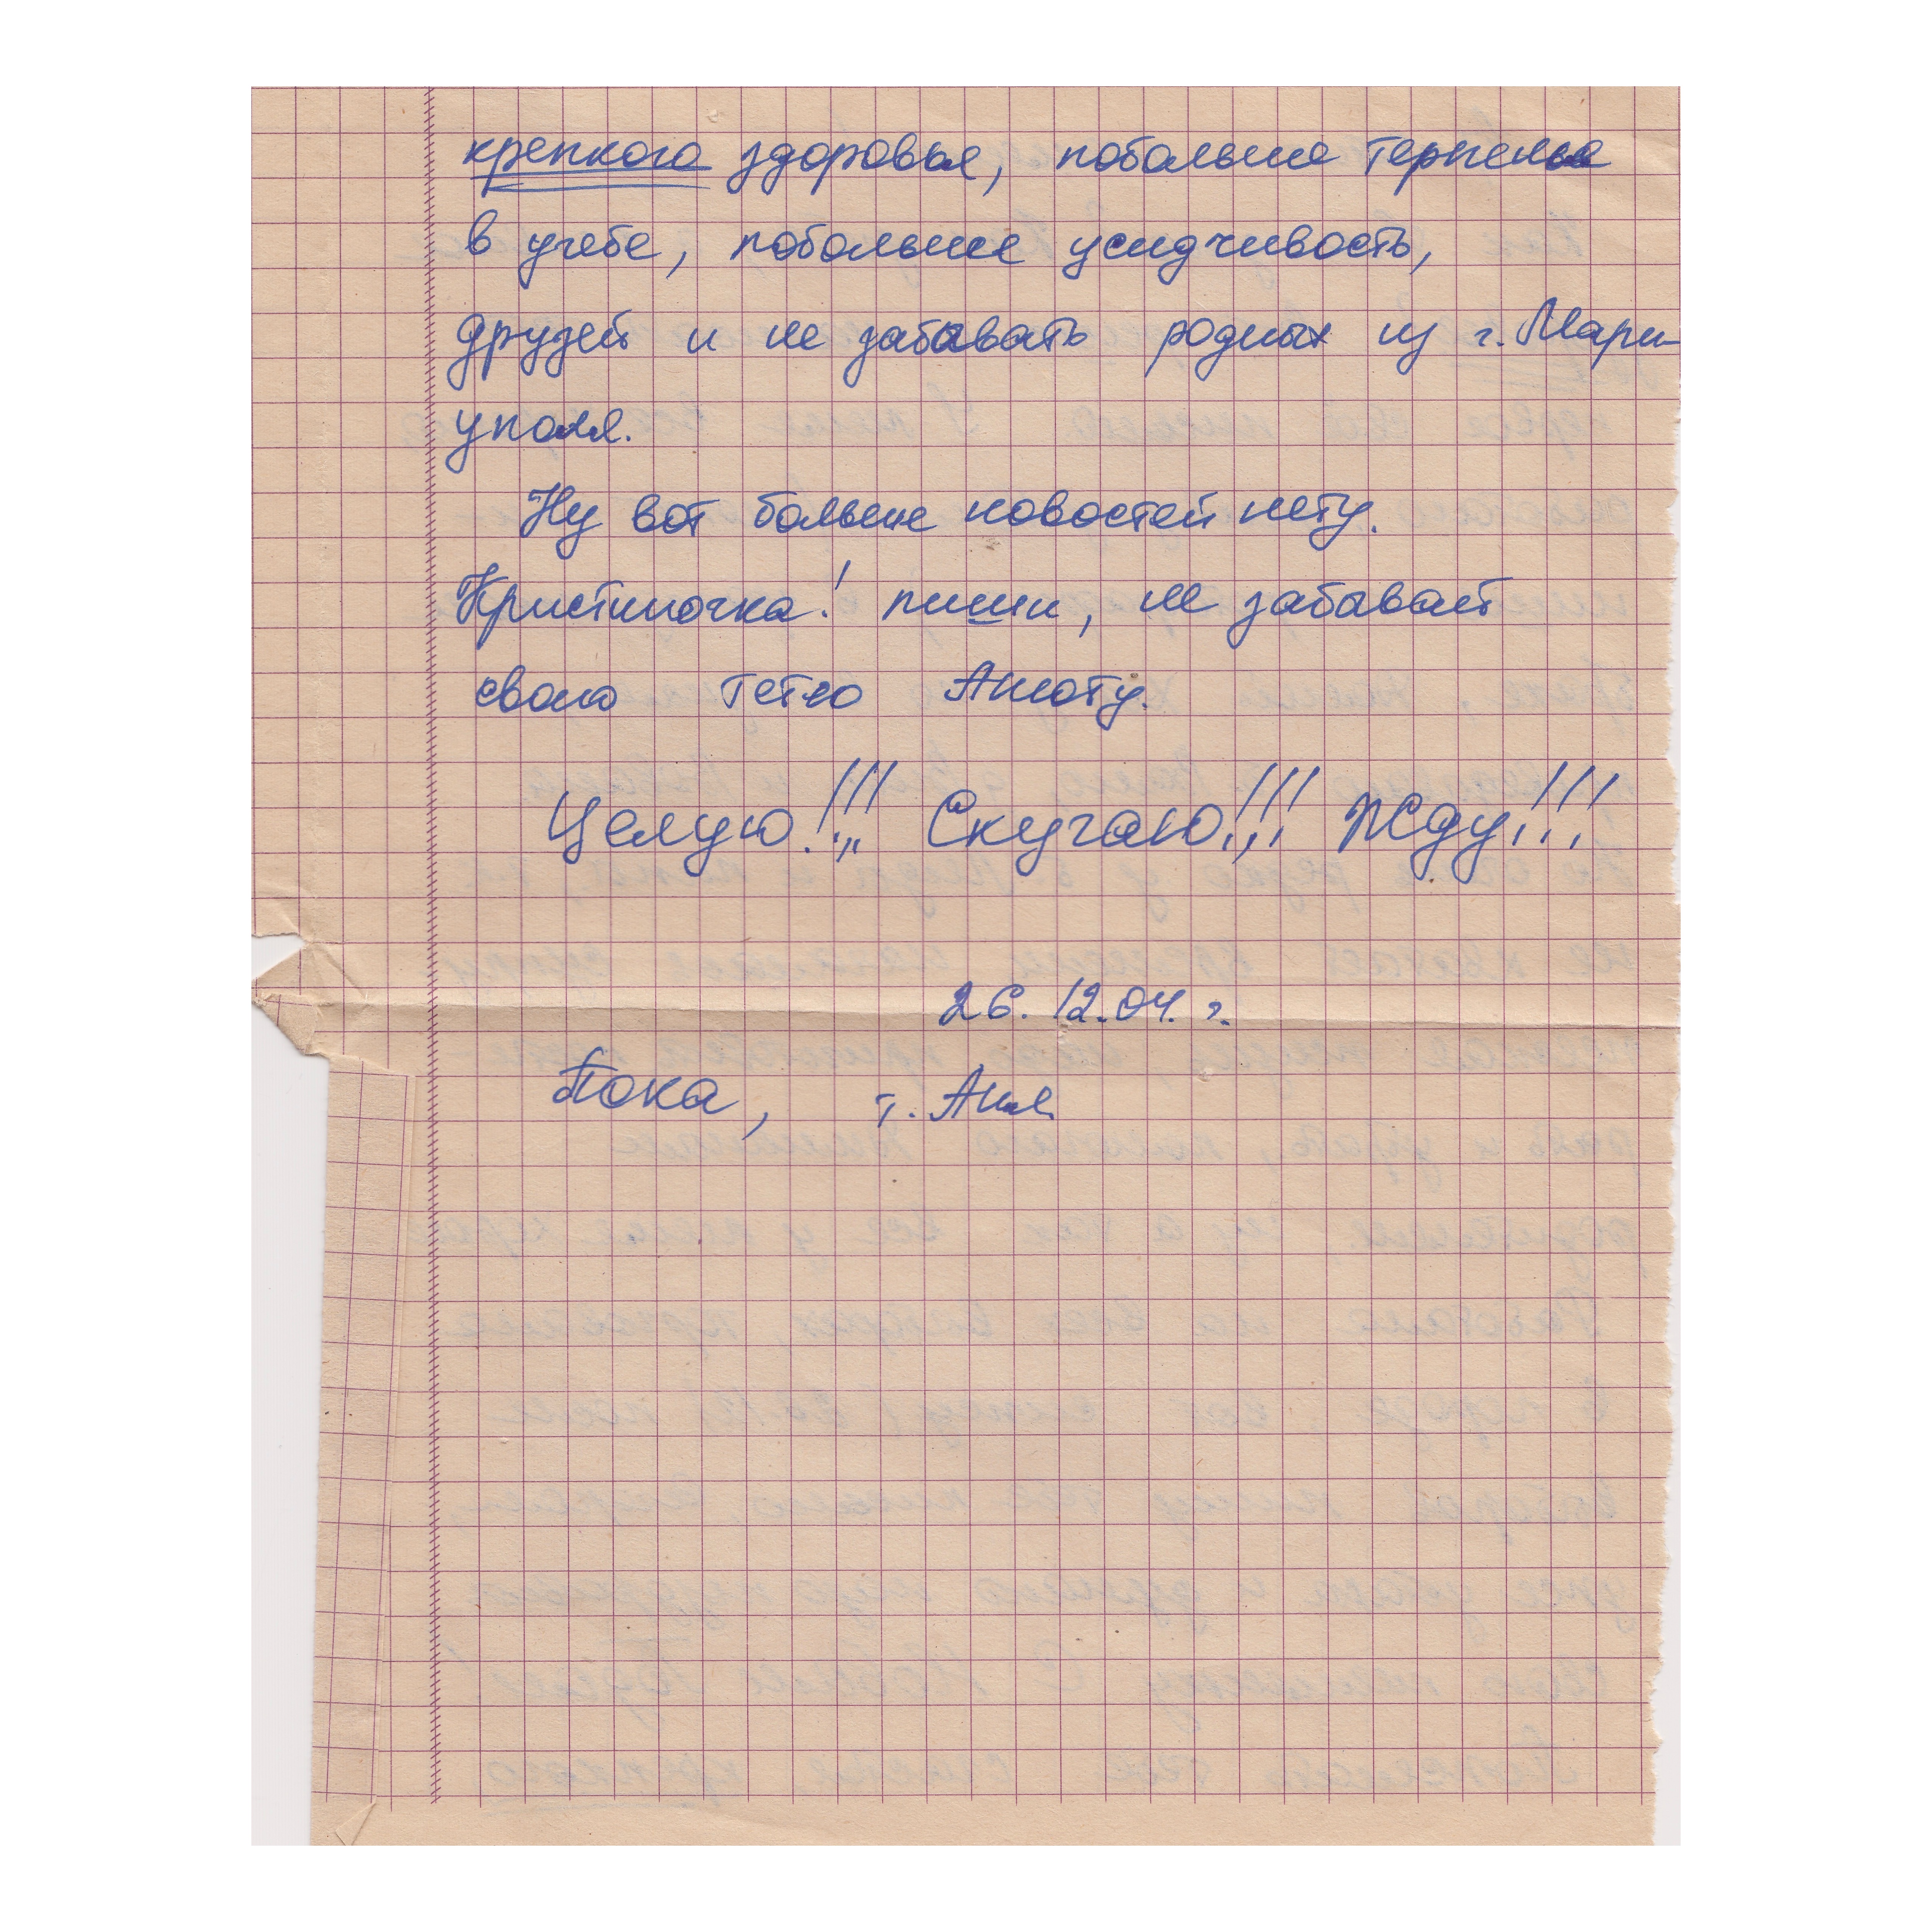 крепкого здоровья, побольше терпенья
в учебе, побольше усидчивость,
друзей и не забывать родных из г. Мари-
уполя.
Ну вот больше новостей нету.
Кристиночка! пиши, не забывай
свою тетю Анюту.
Целую!!! Скучаю!!! Жду!!!
26.12.04. г.
Пока, т. Аня.